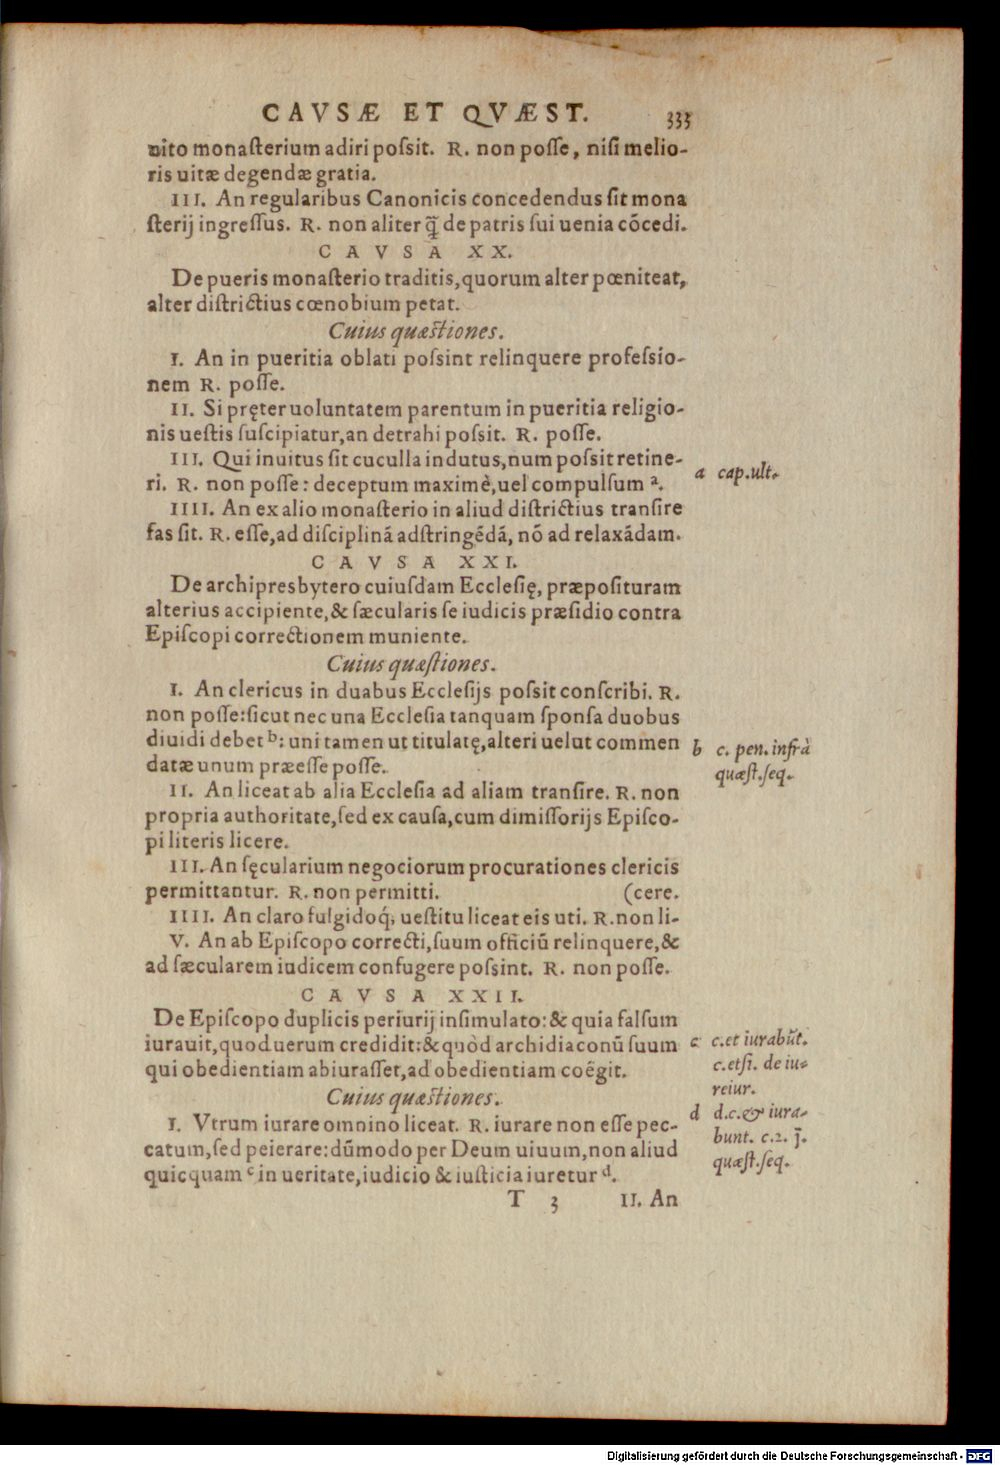 CAVSÆ ET QVÆST. 333
uito monaſterium adiri poſsit. R. non poſſe, niſi melio-
ris uitæ degendæ gratia.
III. An regularibus Canonicis concedendus ſit mona
ſterij ingreſſus. R. non aliter q̃ de patris ſui uenia cõcedi.
CAVSA XX.
De pueris monaſterio traditis, quorum alter pœniteat,
alter diſtrictius cœnobium petat.
Cuius quæſtiones.
I. An in pueritia oblati poſsint relinquere profeſsio-
nem R. poſſe.
II. Si pręter uoluntatem parentum in pueritia religio-
nis ueſtis ſuſcipiatur, an detrahi poſsit. R. poſſe.
III. Qui inuitus ſit cuculla indutus, num poſsit retine-
ri. R. non poſſe: deceptum maximè, uel compulſum a.
a cap. ult.
IIII. An ex alio monaſterio in aliud diſtrictius tranſire
fas ſit. R. eſſe, ad diſciplinã adſtringẽdã, nõ ad relaxãdam.
CAVSA XXI.
De archipresbytero cuiuſdam Eccleſię, præpoſituram
alterius accipiente, & ſæcularis ſe iudicis præſidio contra
Epiſcopi correctionem muniente.
Cuius quæſtiones.
I. An clericus in duabus Eccleſijs poſsit conſcribi. R.
non poſſe: ſicut nec una Eccleſia tanquam ſponſa duobus
diuidi debet b: uni tamen ut titulatę, alteri uelut commen
datæ unum præeſſe poſſe.
b c. pen. infrà
quæſt. ſeq.
II. An liceat ab alia Eccleſia ad aliam tranſire. R. non
propria authoritate, ſed ex cauſa, cum dimiſſorijs Epiſco-
pi literis licere.
III. An ſęcularium negociorum procurationes clericis
permittantur. R. non permitti. (cere.
IIII. An claro fulgidoq́; ueſtitu liceat eis uti. R. non li-
V. An ab Epiſcopo correcti, ſuum officiũ relinquere, &
ad ſæcularem iudicem confugere poſsint. R. non poſſe.
CAVSA XXII.
De Epiſcopo duplicis periurij inſimulato: & quia falſum
iurauit, quod uerum credidit: & quòd archidiaconũ ſuum
qui obedientiam abiuraſſet, ad obedientiam coêgit.
Cuius quæſtiones.
I. Vtrum iurare omnino liceat. R. iurare non eſſe pec-
catum, ſed peierare: dũmodo per Deum uiuum, non aliud
quicquam c in ueritate, iudicio & iuſticia iuretur d.
c c. et iurabũt.
c. etſi. de iu-
reiur.
d d. c. & iura-
bunt. c. 2. j̄.
quæſt. ſeq.
T 3 II. An
Digitalisierung gefördert durch die Deutsche Forschungsgemeinschaft - DFG